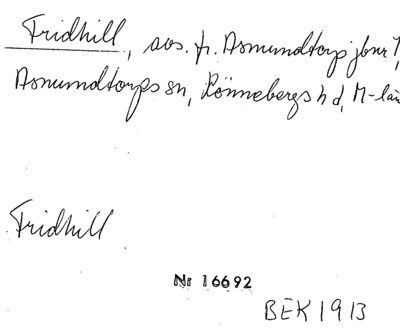 Fridhill, avs. fr. Asmundtorp jbnr 7,
Asmundtorps sn, Rönnebergs hd, M-län
Fridhill
Nr 16692
BEK 1913